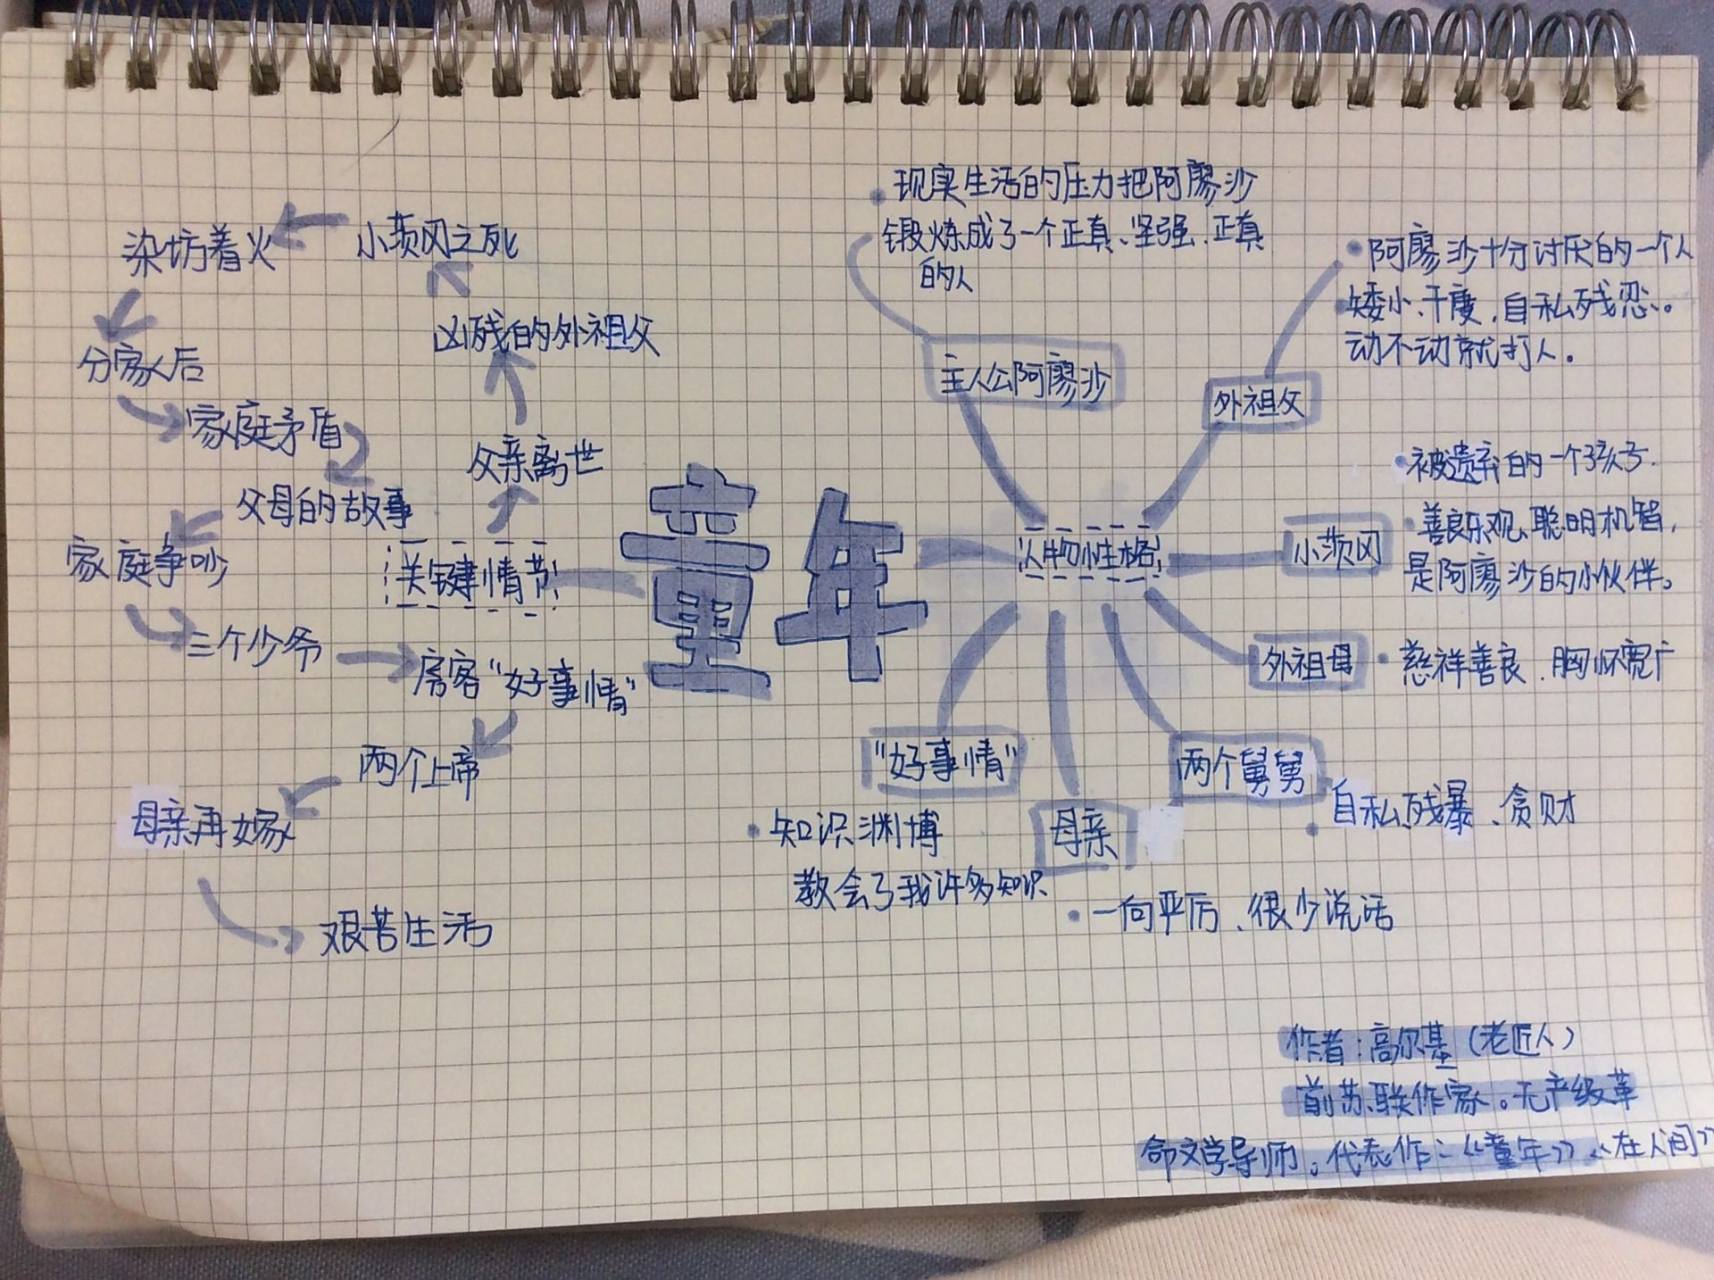 童年
关键情节
父亲离世
凶残的外祖父
小茨冈之死
染坊着火
分家以后
家庭矛盾
父母的故事
家庭争吵
三个少爷
房客“好事情”
两个上帝
母亲再嫁
艰苦生活
人物性格
主人公阿廖沙
现实生活的压力把阿廖沙
锻炼成了一个正真、坚强、正真
的人
外祖父
阿廖沙十分讨厌的一个人
矮小、干瘦、自私残忍。
动不动就打人。
小茨冈
被遗弃的一个孩子.
善良乐观、聪明机智,
是阿廖沙的小伙伴。
外祖母
慈祥善良、胸怀宽广
两个舅舅
自私残暴、贪财
母亲
一向严厉、很少说话
“好事情”
知识渊博
教会了我许多知识
作者:高尔基(老匠人)
前苏联作家。无产级革
命文学导师。代表作:《童年》《在人间》